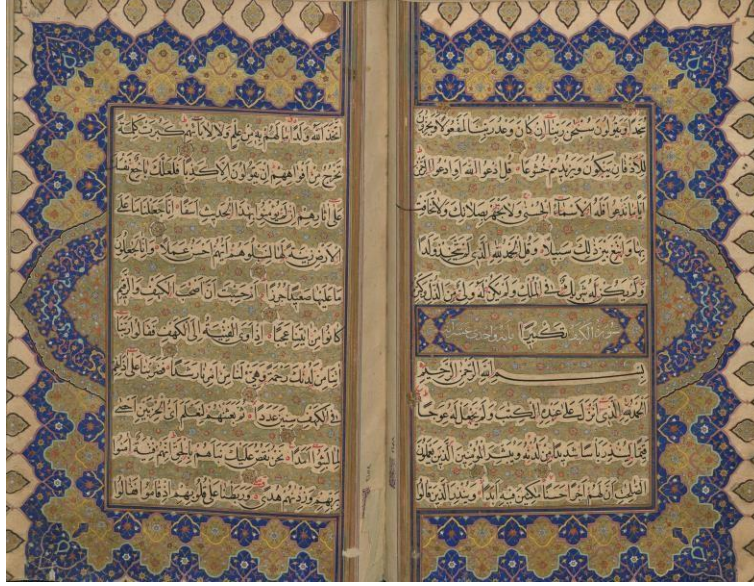 سُجَّدًا وَيَقُولُونَ سُبْحٰنَ رَبِّنَا إِنْ كَانَ وَعْدُ رَبِّنَا لَمَفْعُولًا وَيَخِرُّونَ
لِلْأَذْقَانِ يَبْكُونَ وَيَزِيدُهُمْ خُشُوعًا قُلِ ادْعُوا اللَّهَ أَوِ ادْعُوا الرَّحْمٰنَ
أَيًّا مَا تَدْعُوا فَلَهُ الْأَسْمَاءُ الْحُسْنَى وَلَا تَجْهَرْ بِصَلَاتِكَ وَلَا تُخَافِتْ
بِهَا وَابْتَغِ بَيْنَ ذٰلِكَ سَبِيلًا وَقُلِ الْحَمْدُ لِلَّهِ الَّذِي لَمْ يَتَّخِذْ وَلَدًا
وَلَمْ يَكُنْ لَهُ شَرِيكٌ فِي الْمُلْكِ وَلَمْ يَكُنْ لَهُ وَلِيٌّ مِنَ الذُّلِّ وَكَبِّرْهُ
سورة الكهف تَكْبِيرًا
بِسْمِ اللَّهِ الرَّحْمٰنِ الرَّحِيمِ
الْحَمْدُ لِلَّهِ الَّذِي أَنْزَلَ عَلَى عَبْدِهِ الْكِتٰبَ وَلَمْ يَجْعَلْ لَهُ عِوَجًا
قَيِّمًا لِيُنْذِرَ بَأْسًا شَدِيدًا مِنْ لَدُنْهُ وَيُبَشِّرَ الْمُؤْمِنِينَ الَّذِينَ يَعْمَلُونَ
الصّٰلِحٰتِ أَنَّ لَهُمْ أَجْرًا حَسَنًا مٰكِثِينَ فِيهِ أَبَدًا وَيُنْذِرَ الَّذِينَ قَالُوا
اتَّخَذَ اللَّهُ وَلَدًا مَا لَهُمْ بِهِ مِنْ عِلْمٍ وَلَا لِآبَائِهِمْ كَبُرَتْ كَلِمَةً
تَخْرُجُ مِنْ أَفْوَاهِهِمْ إِنْ يَقُولُونَ إِلَّا كَذِبًا فَلَعَلَّكَ بَاخِعٌ نَفْسَكَ
عَلَى آثَارِهِمْ إِنْ لَمْ يُؤْمِنُوا بِهٰذَا الْحَدِيثِ أَسَفًا إِنَّا جَعَلْنَا مَا عَلَى
الْأَرْضِ زِينَةً لَهَا لِنَبْلُوَهُمْ أَيُّهُمْ أَحْسَنُ عَمَلًا وَإِنَّا لَجَاعِلُونَ
مَا عَلَيْهَا صَعِيدًا جُرُزًا أَمْ حَسِبْتَ أَنَّ أَصْحٰبَ الْكَهْفِ وَالرَّقِيمِ
كَانُوا مِنْ آيَاتِنَا عَجَبًا إِذْ أَوَى الْفِتْيَةُ إِلَى الْكَهْفِ فَقَالُوا رَبَّنَا
آتِنَا مِنْ لَدُنْكَ رَحْمَةً وَهَيِّئْ لَنَا مِنْ أَمْرِنَا رَشَدًا فَضَرَبْنَا عَلَى آذَانِهِمْ
فِي الْكَهْفِ سِنِينَ عَدَدًا ثُمَّ بَعَثْنٰهُمْ لِنَعْلَمَ أَيُّ الْحِزْبَيْنِ أَحْصَى
لِمَا لَبِثُوا أَمَدًا نَحْنُ نَقُصُّ عَلَيْكَ نَبَأَهُمْ بِالْحَقِّ إِنَّهُمْ فِتْيَةٌ آمَنُوا
بِرَبِّهِمْ وَزِدْنٰهُمْ هُدًى وَرَبَطْنَا عَلَى قُلُوبِهِمْ إِذْ قَامُوا فَقَالُوا